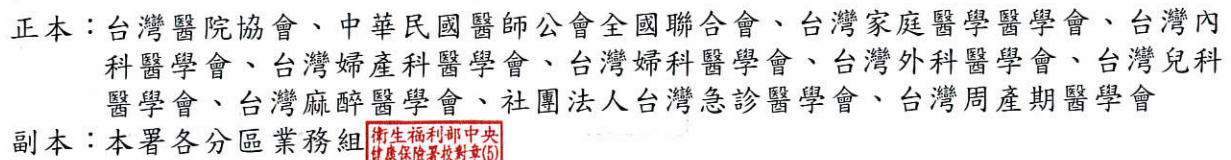 正本：台灣醫院協會、中華民國醫師公會全國聯合會、台灣家庭醫學醫學會、台灣內
科醫學會、台灣婦產科醫學會、台灣婦科醫學會、台灣外科醫學會、台灣兒科
醫學會、台灣麻醉醫學會、社團法人台灣急診醫學會、台灣周產期醫學會
副本：本署各分區業務組
衛生福利部中央
健康保險署校對章(5)